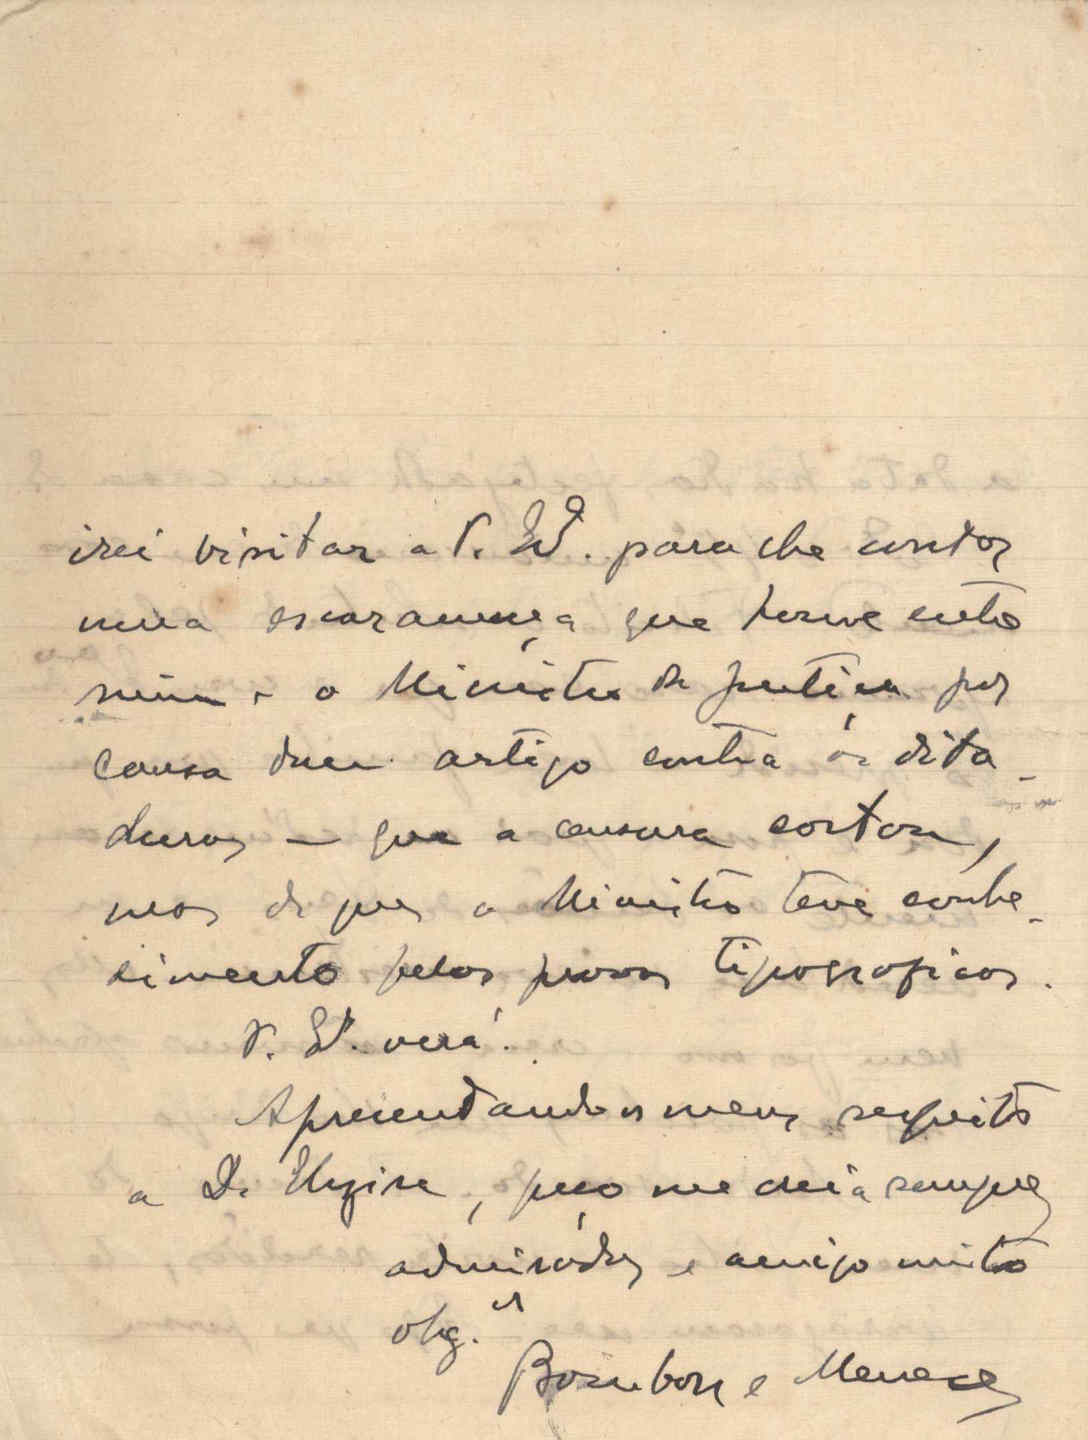 irei visitar a V. Exª. para lhe contar
uma escaramuça que houve entre
mim e o Ministro da Justiça por
causa dum artigo contra as dita-
duras — que a censura cortou,
mas de que o Ministro teve conhe-
cimento pelas provas tipograficas.
V. Exª. verá.
Apresentando os meus respeitos
a D. Elzira, peço me creia sempre
admirador e amigo muito
obg.º
Bourbon e Meneses